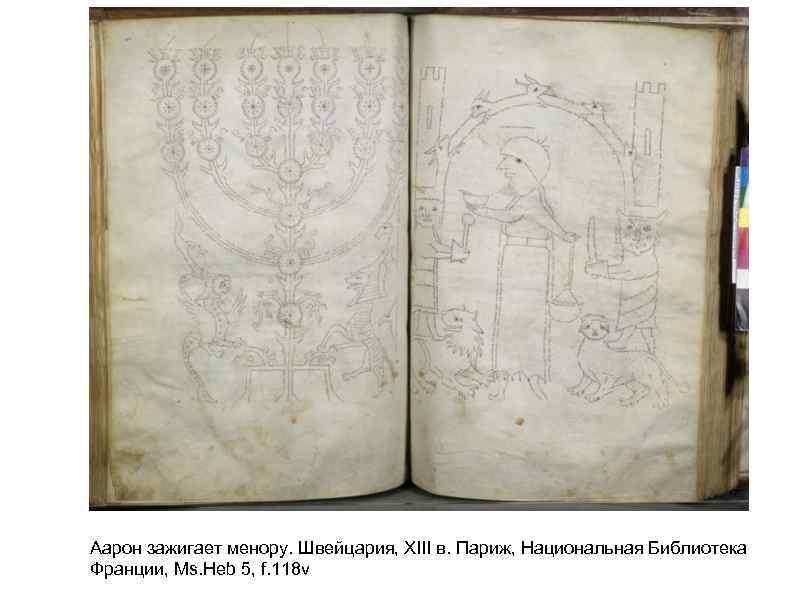 Аарон зажигает менору. Швейцария, XIII в. Париж, Национальная Библиотека
Франции, Ms.Heb 5, f.118v